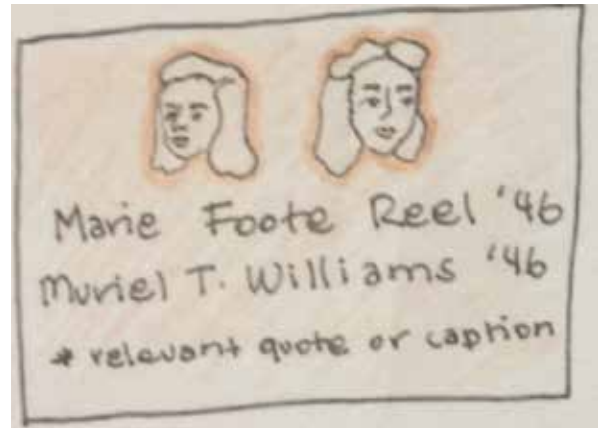 Marie Foote Reel '46
Muriel T. Williams '46
* relevant quote or caption